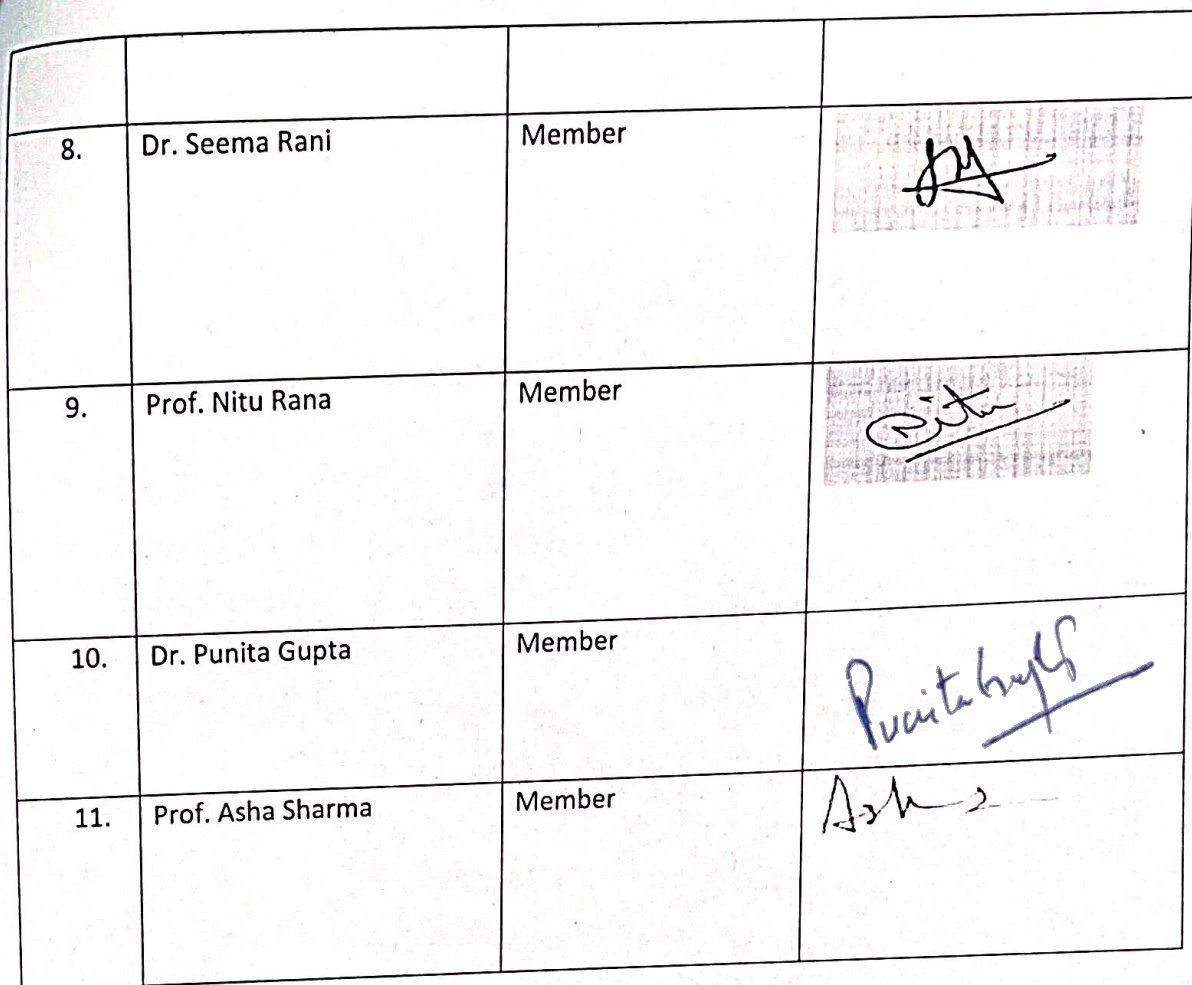 8. Dr. Seema Rani Member
9. Prof. Nitu Rana Member Nitu
10. Dr. Punita Gupta Member Punita Gupta
11. Prof. Asha Sharma Member Asha